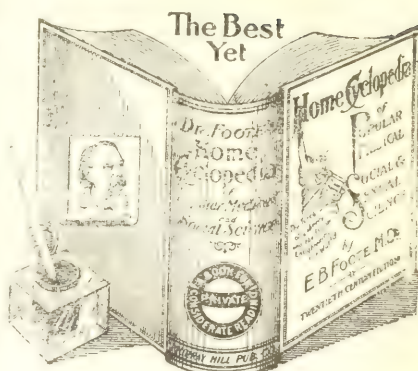 The Best
Yet
Dr. Foote's
Home
Cyclopedia
of
Popular Medical
and
Social Science
A BOOK FOR
PRIVATE
CONSIDERATE READING
MURRAY HILL PUB. CO.
Home Cyclopedia
OF
POPULAR
MEDICAL
SOCIAL &
SEXUAL
SCIENCE
by
E.B. FOOTE. M.D.
TWENTIETH CENTURY EDITION